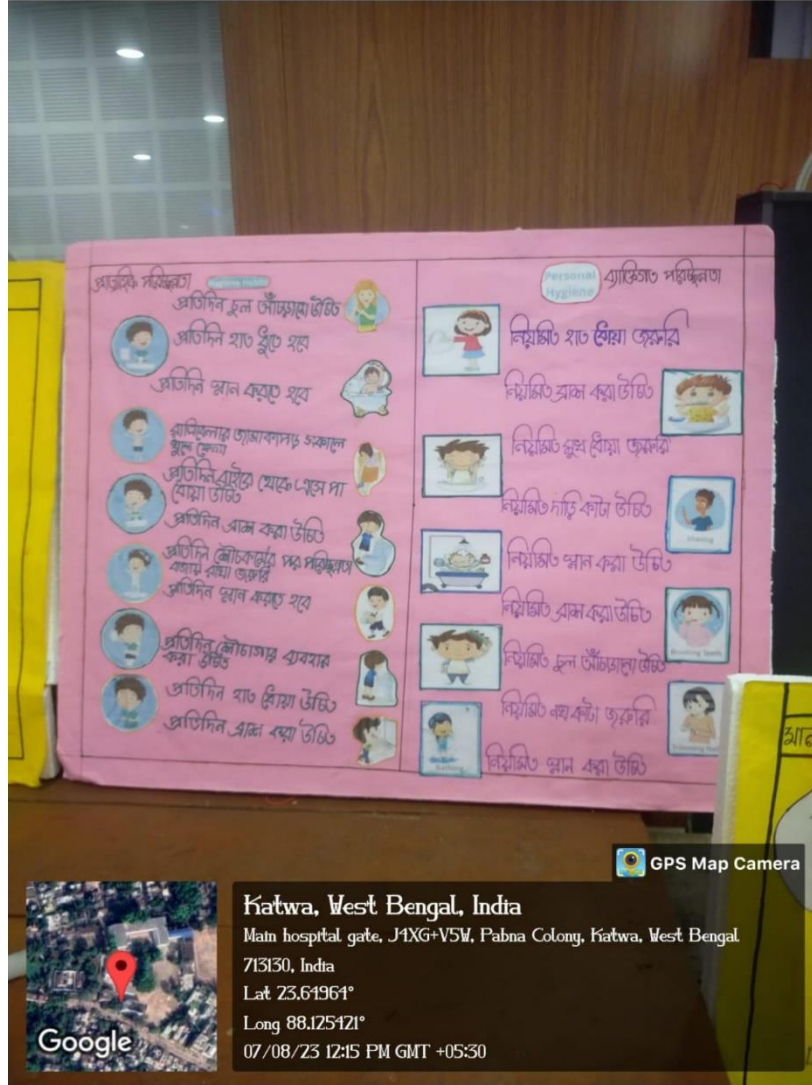 প্রাত্যহিক পরিচ্ছন্নতা Hygiene Habits
প্রতিদিন চুল আঁচড়ানো উচিত
প্রতিদিন হাত ধুতে হবে
প্রতিদিন স্নান করতে হবে
রাত্রিবেলার জামাকাপড় সকালে
খুলে ফেলা
প্রতিদিন বাইরে থেকে এসে পা
ধোয়া উচিত
প্রতিদিন ব্রাশ করা উচিত
প্রতিদিন শৌচকর্মের পর পরিচ্ছন্নতা
বজায় রাখা জরুরি
প্রতিদিন স্নান করতে হবে
প্রতিদিন শৌচাগার ব্যবহার
করা উচিত
প্রতিদিন হাত ধোয়া উচিত
প্রতিদিন ব্রাশ করা উচিত
Personal Hygiene ব্যাক্তিগত পরিচ্ছন্নতা
নিয়মিত হাত ধোয়া জরুরি
নিয়মিত ব্রাশ করা উচিত
নিয়মিত মুখ ধোয়া জরুরি
নিয়মিত দাড়ি কাটা উচিত
Shaving
নিয়মিত স্নান করা উচিত
নিয়মিত ব্রাশ করা উচিত
Brushing Teeth
নিয়মিত চুল আঁচড়ানো উচিত
নিয়মিত নখ কাটা জরুরি
Trimming Nails
নিয়মিত স্নান করা উচিত
Bathing
GPS Map Camera
Katwa, West Bengal, India
Main hospital gate, J4XG+V5W, Pabna Colony, Katwa, West Bengal
713130, India
Lat 23.64964°
Long 88.125421°
07/08/23 12:15 PM GMT +05:30
Google